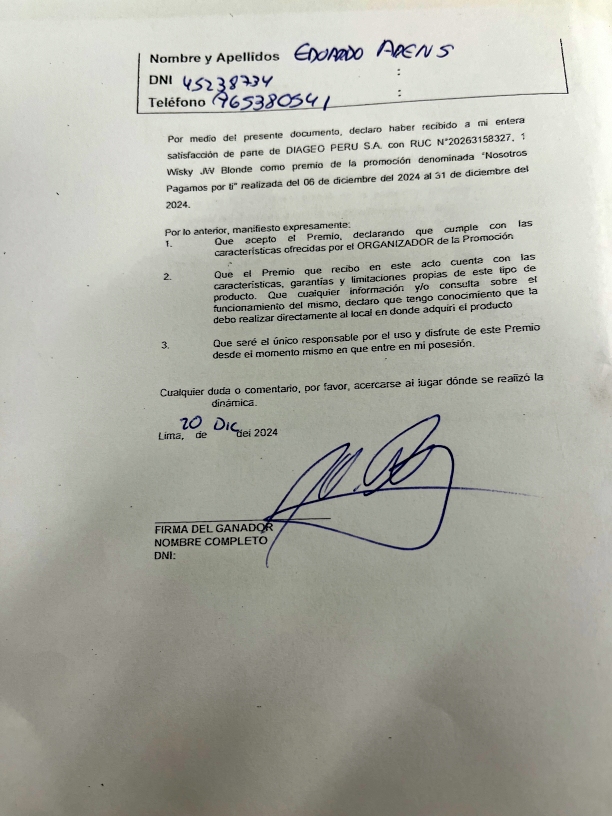 Nombre y Apellidos EDUARDO ARENS
:
DNI 45238734
Teléfono 965380541 :
Por medio del presente documento, declaro haber recibido a mi entera
satisfacción de parte de DIAGEO PERU S.A. con RUC N°20263158327, 1
Wisky JW Blonde como premio de la promoción denominada "Nosotros
Pagamos por ti" realizada del 06 de diciembre del 2024 al 31 de diciembre del
2024.
Por lo anterior, manifiesto expresamente:
1. Que acepto el Premio, declarando que cumple con las
características ofrecidas por el ORGANIZADOR de la Promoción
2. Que el Premio que recibo en este acto cuenta con las
características, garantías y limitaciones propias de este tipo de
producto. Que cualquier información y/o consulta sobre el
funcionamiento del mismo, declaro que tengo conocimiento que la
debo realizar directamente al local en donde adquirí el producto
3. Que seré el único responsable por el uso y disfrute de este Premio
desde el momento mismo en que entre en mi posesión.
Cualquier duda o comentario, por favor, acercarse al lugar dónde se realizó la
dinámica.
Lima, 20 de Dic del 2024
FIRMA DEL GANADOR
NOMBRE COMPLETO
DNI: